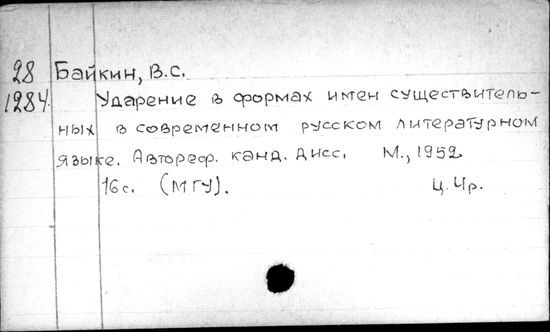 28 Байкин, В.С.
1284. Ударение в формах имен существитель-
ных в современном русском литературном
языке. Автореф. канд. дисс. М., 1952
16с. (МГУ). Ц. Чр.